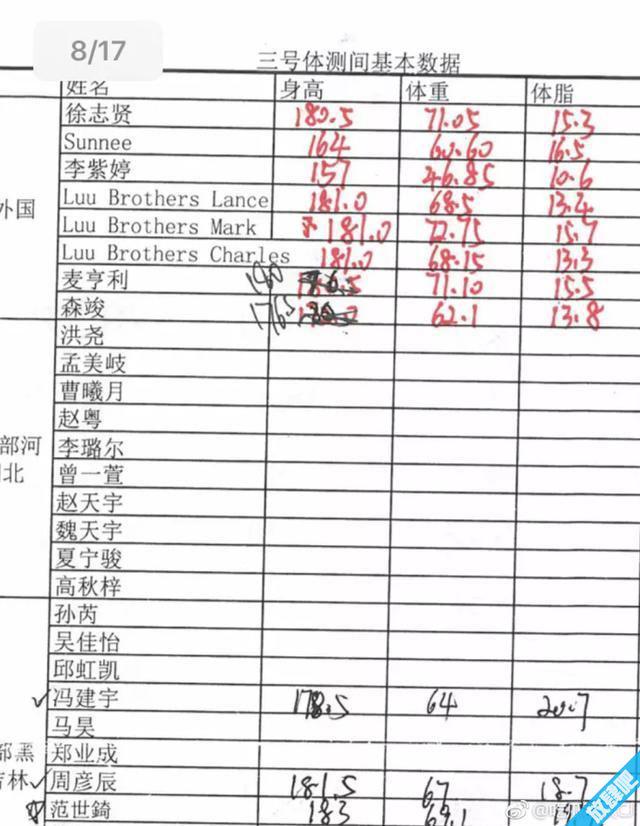 8/17
三号体测间基本数据
姓名 身高 体重 体脂
徐志贤 180.5 71.05 15.3
Sunnee 164 60.60 16.5
李紫婷 157 46.85 10.6
外国
Luu Brothers Lance 181.0 68.5 13.4
Luu Brothers Mark 181.0 72.75 15.7
Luu Brothers Charles 181.0 68.15 13.3
麦亨利 180 71.10 15.5
森竣 176.5 62.1 13.8
洪尧
孟美岐
曹曦月
赵粤
部河
北
李璐尔
曾一萱
赵天宇
魏天宇
夏宁骏
高秋梓
孙芮
吴佳怡
邱虹凯
✓冯建宇 178.5 64 20.7
马昊
部黑
吉林
郑业成
✓周彦辰 181.5 67 18.7
范世錡 183 69.1
放肆吧